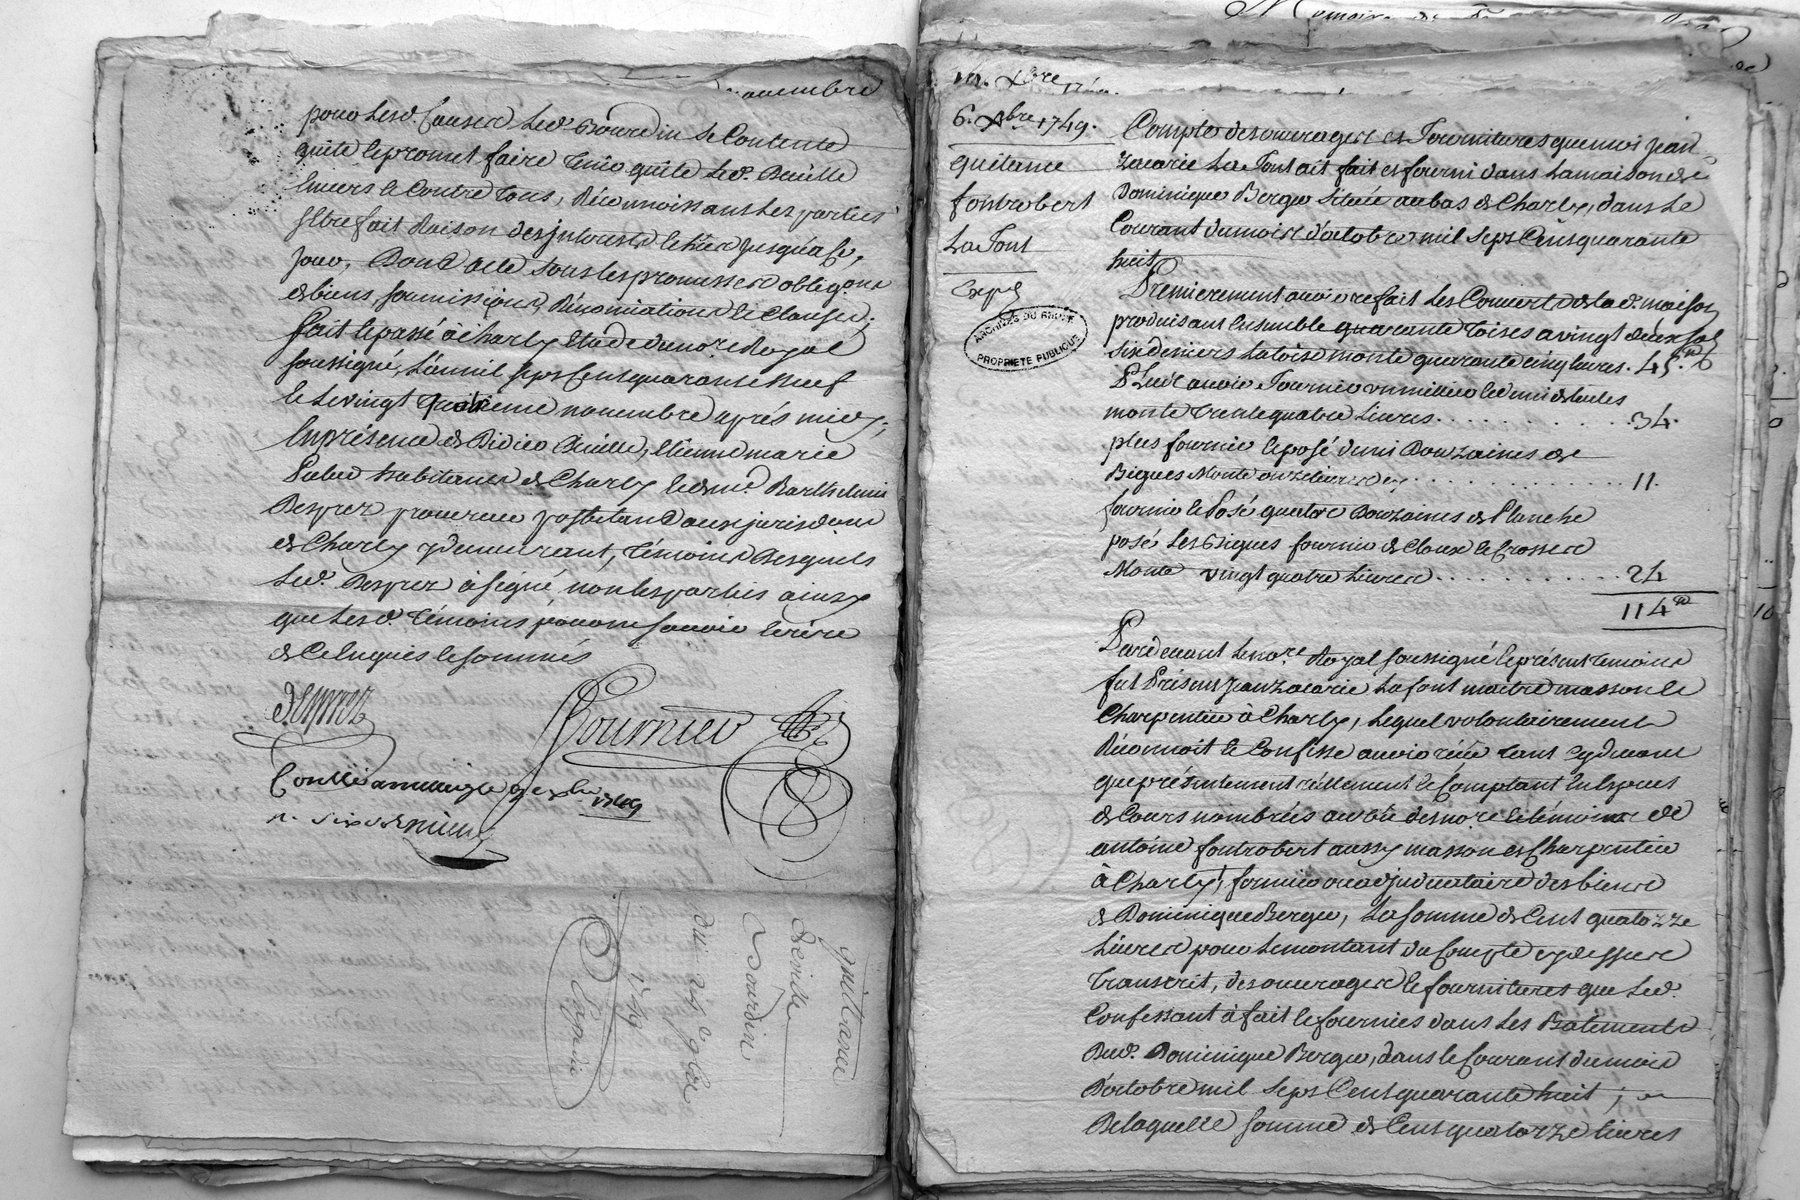 novembre
pour lesd. causes led. Bourdin se contente
quite et promet faire tenir quite led. Baille
envers et contre tous, Reconnoissants les parties
s'etre fait Raison des interests et tier jusqu'a ce
jour, Dont acte sous les promesses obligons
de biens, soumissions, Rénonciations et clauses;
fait et passé à Charly Etude du nore. Royal
soussigné, L'an mil sept cent quarante neuf
et le vingt quatrieme novembre aprés midy;
En présence de Didier Baille, etienne marie
habitans de Charly et de me. Barthelemi
Desprez procureur postulant aux jurisdons
de Charly y demeurant, témoins Desquels
led. Desprez à signé non les parties ainsy
que lesd. témoins pour ne savoir écrire
de ce enquis et sommés
Desprez
Fournier
Conllé a
r. six
quittance
Baille
Bourdin
du 24 9bre
1749
Expédié
Memoire
14. Xbre
6. Xbre 1749.
quitance
fontrobert
La Font
Expé
ARCHIVES DU RHONE
PROPRIETE PUBLIQUE
Compte des ouvrages et Fournitures que moi jean
zacarie La Font ait fait et fourni dans la maison de
Dominique Berger Située au bas de Charly, dans le
Courant du mois d'octobre mil sept Cent quarante
huit
Premierement avoir refait Les Couverts de la d. maison
produisant Ensemble quarante toises a vingt deux sols
six deniers la toise monte quarante cinq livres. 45.#
Plus avoir Fournir un millier et demi de tuiles
monte trente quatre Livres. . . . . . . . 34.
plus fournir et posé demi Douzaines de
Bigues Monte onze livres cy . . . . . . . . 11.
fournir et Posé quatre Douzaines de Planche
posé les Bigues fournir de Cloux et Crosses
Monte vingt quatre Livres . . . . . . . . 24
114#
Pardevant le nore. Royal soussigné et présent temoins
fut Présent jean zacarie Lafont maitre masson et
Charpentier à Charly, lequel volontairement
Réconnoit et Confesse avoir réçu tant cydevant
que présentement réellement et Comptant En Espéces
de Cours nombrées au vû de nore. et témoins de
antoine fontrobert aussy masson et Charpentier
à Charly, fermier adjudicataire des biens
de Dominique Berger, La somme de Cent quatorze
Livres pour Le montant du Compte cy dessus
transcrit, des ouvrages et fournitures que led.
Confessant à fait et fournies dans Les Batiments
Dud. Dominique Berger, dans le Courant du mois
D'octobre mil Sept Cent quarante huit ;
De laquelle somme de Cent quatorze livres